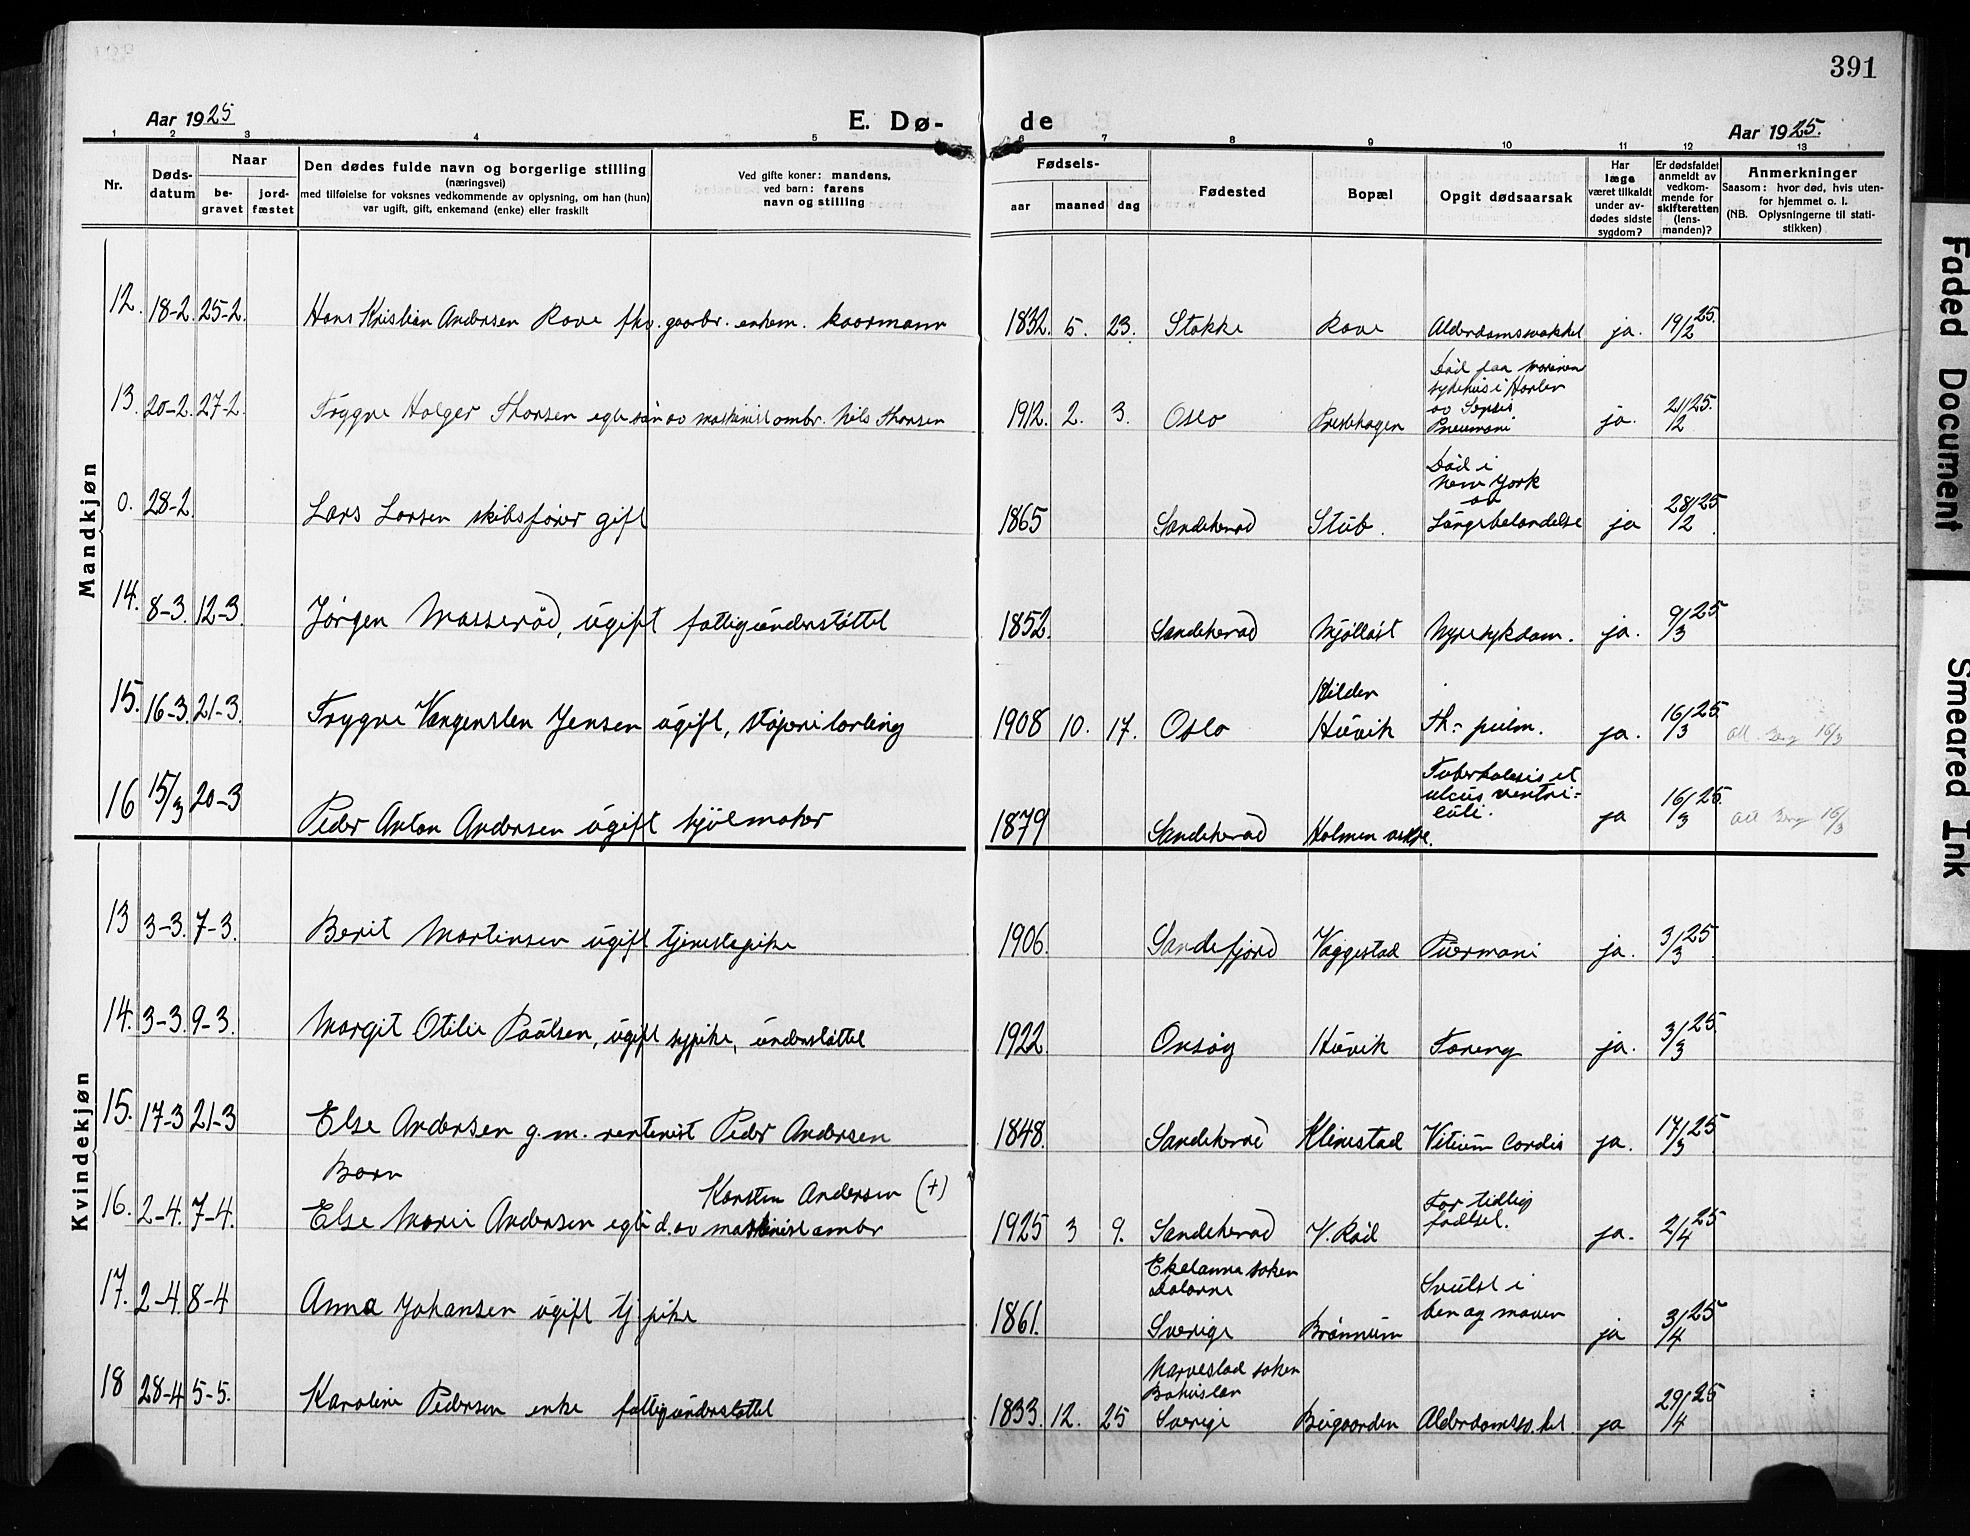 391
Aar 1925
E. Dø-
de
Aar 1925.
1 2 3 4 5 6 7 8 9 10 11 12 13
Nr.
Døds-
datum
Naar
be-
gravet
jord-
fæstet
Den dødes fulde navn og borgerlige stilling
(næringsvei)
med tilføielse for voksnes vedkommende av oplysning, om han (hun)
var ugift, gift, enkemand (enke) eller fraskilt
Ved gifte koner: mandens,
ved barn: farens
navn og stilling
Fødsels-
aar
maaned
dag
Fødested
Bopæl
Opgit dødsaarsak
Har
læge
været tilkaldt
under av-
dødes sidste
sygdom?
Er dødsfaldet
anmeldt av
vedkom-
mende for
skifteretten
(lens-
manden)?
Anmerkninger
Saasom: hvor død, hvis uten-
for hjemmet o. l.
(NB. Oplysningerne til stati-
stikken)
Mandkjøn
12. 18-2. 25-2. Hans Kristian Andersen Rove fhv. gaarbr. enkem. 1832. 5. 23. Stokke Rove Alderdomssvakhet ja. 19/2 25.
13. 20-2. 27-2. Trygve Holger Thorsen egte søn av maskinist ombr. Nils Thorsen 1912. 2. 3. Oslo Prestehagen
Død paa
sykehus i Horten
av Sepsis
Pneumoni ja. 21/2 25.
0. 28-2. Lars Larsen skibsfører gift 1865 Sandeherad Stub.
Død i
New York
av
ja 28/2 25
14. 8-3. 12-3. Jørgen Masserød, ugift fattigunderstøttet 1852. Sandeherad Mjølløst Nyresykdom. ja. 9/3 25
15. 16-3. 21-3. Trygve Vangensten Jensen ugift, støperilærling 1908 10. 17. Oslo
Hilden
Huvik Tb. pulm. ja. 16/3 25. Att. Berg 16/3
16 15/3 20-3 Peder Anton Andersen ugift hjulmaker 1879 Sandeherad Holmen
Tuberkulosis et
ulcus ventri-
culi. ja 16/3 25. Att Berg 16/3
Kvindekjøn
13 3-3. 7-3. Berit Martinsen ugift tjenestepike 1906. Sandefjord Vaggestad Puermoni ja. 3/3 25.
14. 3-3. 9-3. Margit Otilie Paulsen, ugift sypike, understøttet 1922. Onsøy Huvik Tæring ja. 3/3 25.
15. 17-3 21-3 Else Andersen g. m. rentenist Peder Andersen 1848. Sandeherad Klinestad Vitium Cordis ja. 17/3 25
Barn
16. 2-4. 7-4. Else Marie Andersen egte d. av maskinist ombr
Karsten Andersen (+)
1925 3 9. Sandeherad V. Rød
For tidlig
fødsel. ja. 2/4 25
17. 2-4. 8-4 Anna Johansen ugift tj pike 1861.
soken
Dalarne
Sverige Brønnum
Svulst i
ben og maven ja 3/4 25
18 28-4 5-5. Karoline Pedersen enke fattigunderstøttet 1833. 12. 25
soken
Bohuslen
Sverige Bugaarden Alderdomssv.het. ja 29/4 25
Faded Document
Smeared Ink